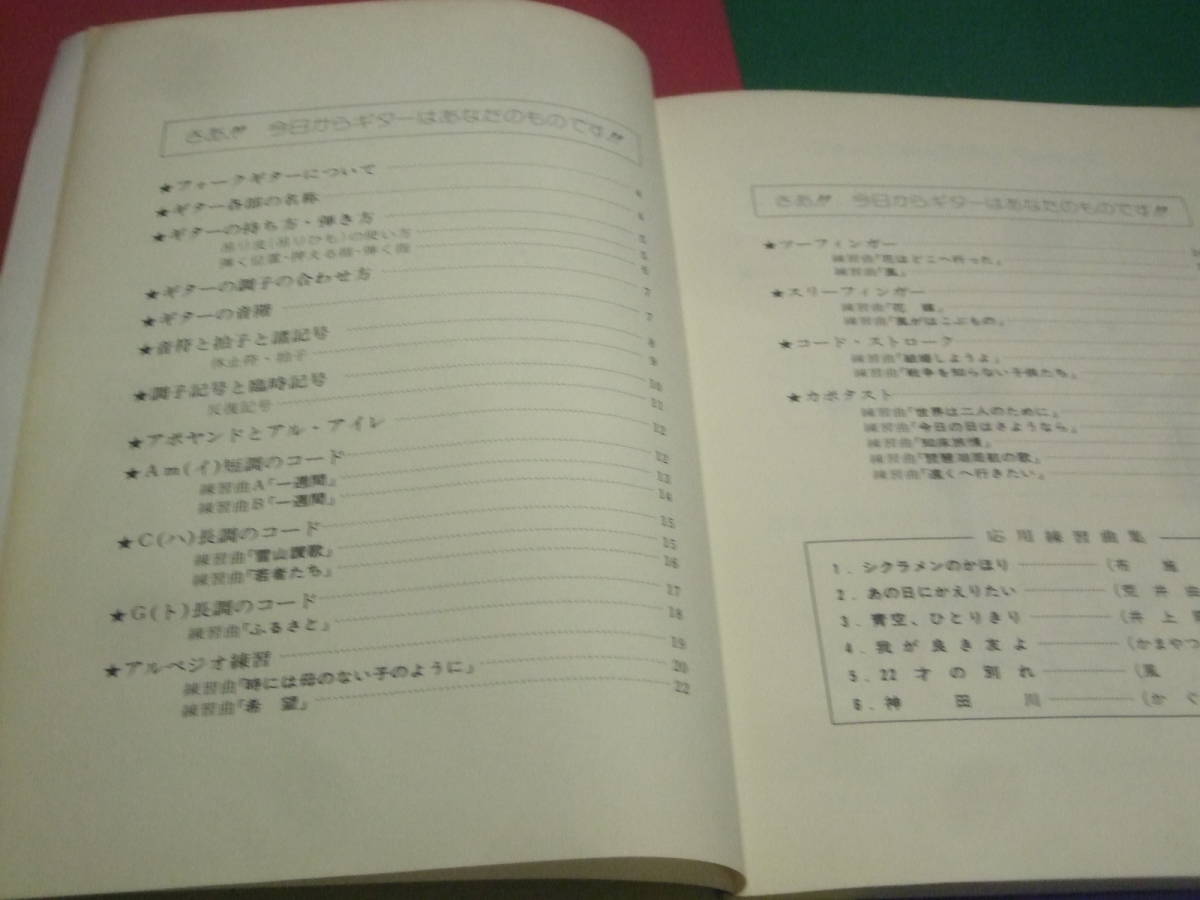 さあ!! 今日からギターはあなたのものです!!
★フォークギターについて 4
★ギター各部の名称 4
★ギターの持ち方・弾き方 5
吊り皮(吊りひも)の使い方 5
弾く位置・押える指・弾く指 6
★ギターの調子の合わせ方 7
★ギターの音階 7
★音符と拍子と諸記号 8
休止符・拍子 9
★調子記号と臨時記号 10
反復記号 11
★アポヤンドとアル・アイレ 12
★Am(イ)短調のコード 12
練習曲A「一週間」 13
練習曲B「一週間」 14
★C(ハ)長調のコード 15
練習曲「雪山讃歌」 15
練習曲「若者たち」 16
★G(ト)長調のコード 17
練習曲「ふるさと」 18
★アルペジオ練習 19
練習曲「時には母のない子のように」 20
練習曲「希 望」 22
さあ!! 今日からギターはあなたのものです!!
★ツーフィンガー
練習曲「花はどこへ行った」
練習曲「風」
★スリーフィンガー
練習曲「花 嫁」
練習曲「風がはこぶもの」
★コード・ストローク
練習曲「結婚しようよ」
練習曲「戦争を知らない子供たち」
★カポタスト
練習曲「世界は二人のために」
練習曲「今日の日はさようなら」
練習曲「知床旅情」
練習曲「琵琶湖周航の歌」
練習曲「遠くへ行きたい」
応用練習曲集
1. シクラメンのかほり (布 施
2. あの日にかえりたい (荒 井 由
3. 青空、ひとりきり (井 上 陽
4. 我 が 良 き 友 よ (かまやつ
5. 22 才 の 別 れ (風
6. 神 田 川 (か ぐ